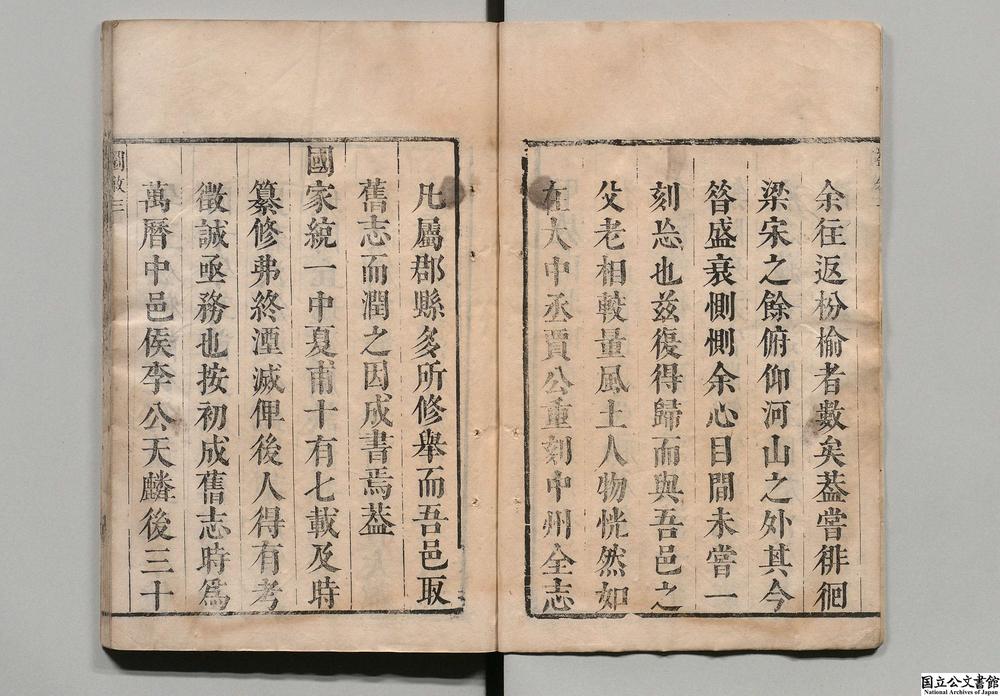 余往返枌榆者數矣葢嘗徘徊
梁宋之餘俯仰河山之外其今
昝盛衰惻惻余心目間未嘗一
刻忘也茲復得歸而與吾邑之
父老相較量風土人物恍然如
在大中丞賈公重刻中州全志
凡屬郡縣多所修舉而吾邑取
舊志而潤之因成書焉葢
國家統一中夏甫十有七載及時
纂修弗終湮滅俾後人得有考
徵誠亟務也按初成舊志時爲
萬曆中邑侯李公天麟後三十
國立公文書館
National Archives of Japan